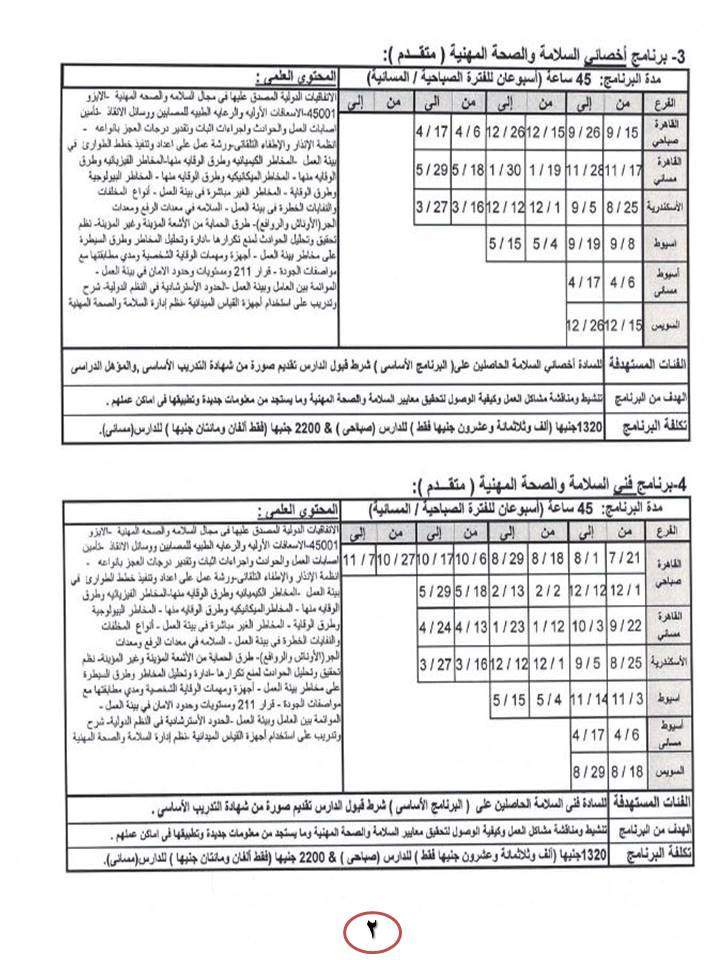 3- برنامج أخصائي السلامة والصحة المهنية ( متقـــدم ):
مدة البرنامج: 45 ساعة (أسبوعان للفترة الصباحية / المسائية)
المحتوى العلمى :
الفرع من إلى من إلى من الى من إلى
القاهرة صباحي 9/15 9/26 12/15 12/26 4/6 4/17
القاهرة مسائي 11/17 11/28 1/19 1/30 5/18 5/29
الأسكندرية 8/25 9/5 12/1 12/12 3/16 3/27
اسيوط 9/8 9/19 5/4 5/15
أسيوط مسائى 4/6 4/17
السويس 12/15 12/26
الاتفاقيات الدولية المصدق عليها فى مجال السلامه والصحه المهنية -الايزو
45001-الاسعافات الأوليه والرعايه الطبيه للمصابين ووسائل الانقاذ -تأمين
اصابات العمل والحوادث واجراءات اثبات وتقدير درجات العجز بانواعه -
انظمة الإنذار والإطفاء التلقائى-ورشة عمل على اعداد وتنفيذ خطط الطوارئ فى
بيئة العمل -المخاطر الكيميائيه وطرق الوقايه منها-المخاطر الفيزيائيه وطرق
الوقايه منها - المخاطر الميكانيكيه وطرق الوقايه منها - المخاطر البيولوجية
وطرق الوقاية - المخاطر الغير مباشرة فى بيئة العمل - أنواع المخلفات
والنفايات الخطرة فى بيئة العمل - السلامه في معدات الرفع ومعدات
الجر(الأوناش والروافع)- طرق الحماية من الأشعة المؤينة وغير المؤينة- نظم
تحقيق وتحليل الحوادث لمنع تكرارها -ادارة وتحليل المخاطر وطرق السيطرة
على مخاطر بيئة العمل - أجهزة ومهمات الوقاية الشخصية ومدي مطابقتها مع
مواصفات الجودة - قرار 211 ومستويات وحدود الامان في بيئة العمل -
الموائمة بين العامل وبيئة العمل -الحدود الأسترشادية فى النظم الدولية- شرح
وتدريب على استخدام أجهزة القياس الميدانية -نظم إدارة السلامة والصحة المهنية
الفئات المستهدفة للسادة أخصائي السلامة الحاصلين على( البرنامج الأساسى ) شرط قبول الدارس تقديم صورة من شهادة التدريب الأساسى ,والمؤهل الدراسى
الهدف من البرنامج تنشيط ومناقشة مشاكل العمل وكيفية الوصول لتحقيق معايير السلامة والصحة المهنية وما يستجد من معلومات جديدة وتطبيقها فى اماكن عملهم .
تكلفة البرنامج 1320جنيها (ألف وثلاثمائة وعشرون جنيها فقط ) للدارس (صباحى ) & 2200 جنيها (فقط ألفان ومائتان جنيها ) للدارس(مسائى).
4-برنامج فني السلامة والصحة المهنية ( متقـــدم ):
مدة البرنامج: 45 ساعة (أسبوعان للفترة الصباحية / المسائية)
المحتوى العلمى :
الفرع من إلى من إلى من إلى من إلى
القاهرة صباحي 7/21 8/1 8/18 8/29 10/6 10/17 10/27 11/7
12/1 12/12 2/2 2/13 5/18 5/29
القاهرة مسائي 9/22 10/3 1/12 1/23 4/13 4/24
الأسكندرية 8/25 9/5 12/1 12/12 3/16 3/27
اسيوط 11/3 11/14 5/4 5/15
أسيوط مسائى 4/6 4/17
السويس 8/18 8/29
الاتفاقيات الدولية المصدق عليها فى مجال السلامه والصحه المهنية -الايزو
45001-الاسعافات الأوليه والرعايه الطبيه للمصابين ووسائل الانقاذ -تأمين
اصابات العمل والحوادث واجراءات اثبات وتقدير درجات العجز بانواعه -
انظمة الإنذار والإطفاء التلقائى-ورشة عمل على اعداد وتنفيذ خطط الطوارئ فى
بيئة العمل -المخاطر الكيميائيه وطرق الوقايه منها-المخاطر الفيزيائيه وطرق
الوقايه منها - المخاطر الميكانيكيه وطرق الوقايه منها - المخاطر البيولوجية
وطرق الوقاية - المخاطر الغير مباشرة فى بيئة العمل - أنواع المخلفات
والنفايات الخطرة فى بيئة العمل - السلامه في معدات الرفع ومعدات
الجر(الأوناش والروافع)- طرق الحماية من الأشعة المؤينة وغير المؤينة- نظم
تحقيق وتحليل الحوادث لمنع تكرارها -ادارة وتحليل المخاطر وطرق السيطرة
على مخاطر بيئة العمل - أجهزة ومهمات الوقاية الشخصية ومدي مطابقتها مع
مواصفات الجودة - قرار 211 ومستويات وحدود الامان في بيئة العمل -
الموائمة بين العامل وبيئة العمل -الحدود الأسترشادية فى النظم الدولية- شرح
وتدريب على استخدام أجهزة القياس الميدانية -نظم إدارة السلامة والصحة المهنية
الفئات المستهدفة للسادة فنى السلامة الحاصلين على ( البرنامج الأساسى ) شرط قبول الدارس تقديم صورة من شهادة التدريب الأساسى .
الهدف من البرنامج تنشيط ومناقشة مشاكل العمل وكيفية الوصول لتحقيق معايير السلامة والصحة المهنية وما يستجد من معلومات جديدة وتطبيقها فى اماكن عملهم .
تكلفة البرنامج 1320جنيها (ألف وثلاثمائة وعشرون جنيها فقط ) للدارس (صباحى ) & 2200 جنيها (فقط ألفان ومائتان جنيها ) للدارس(مسائى).
٢